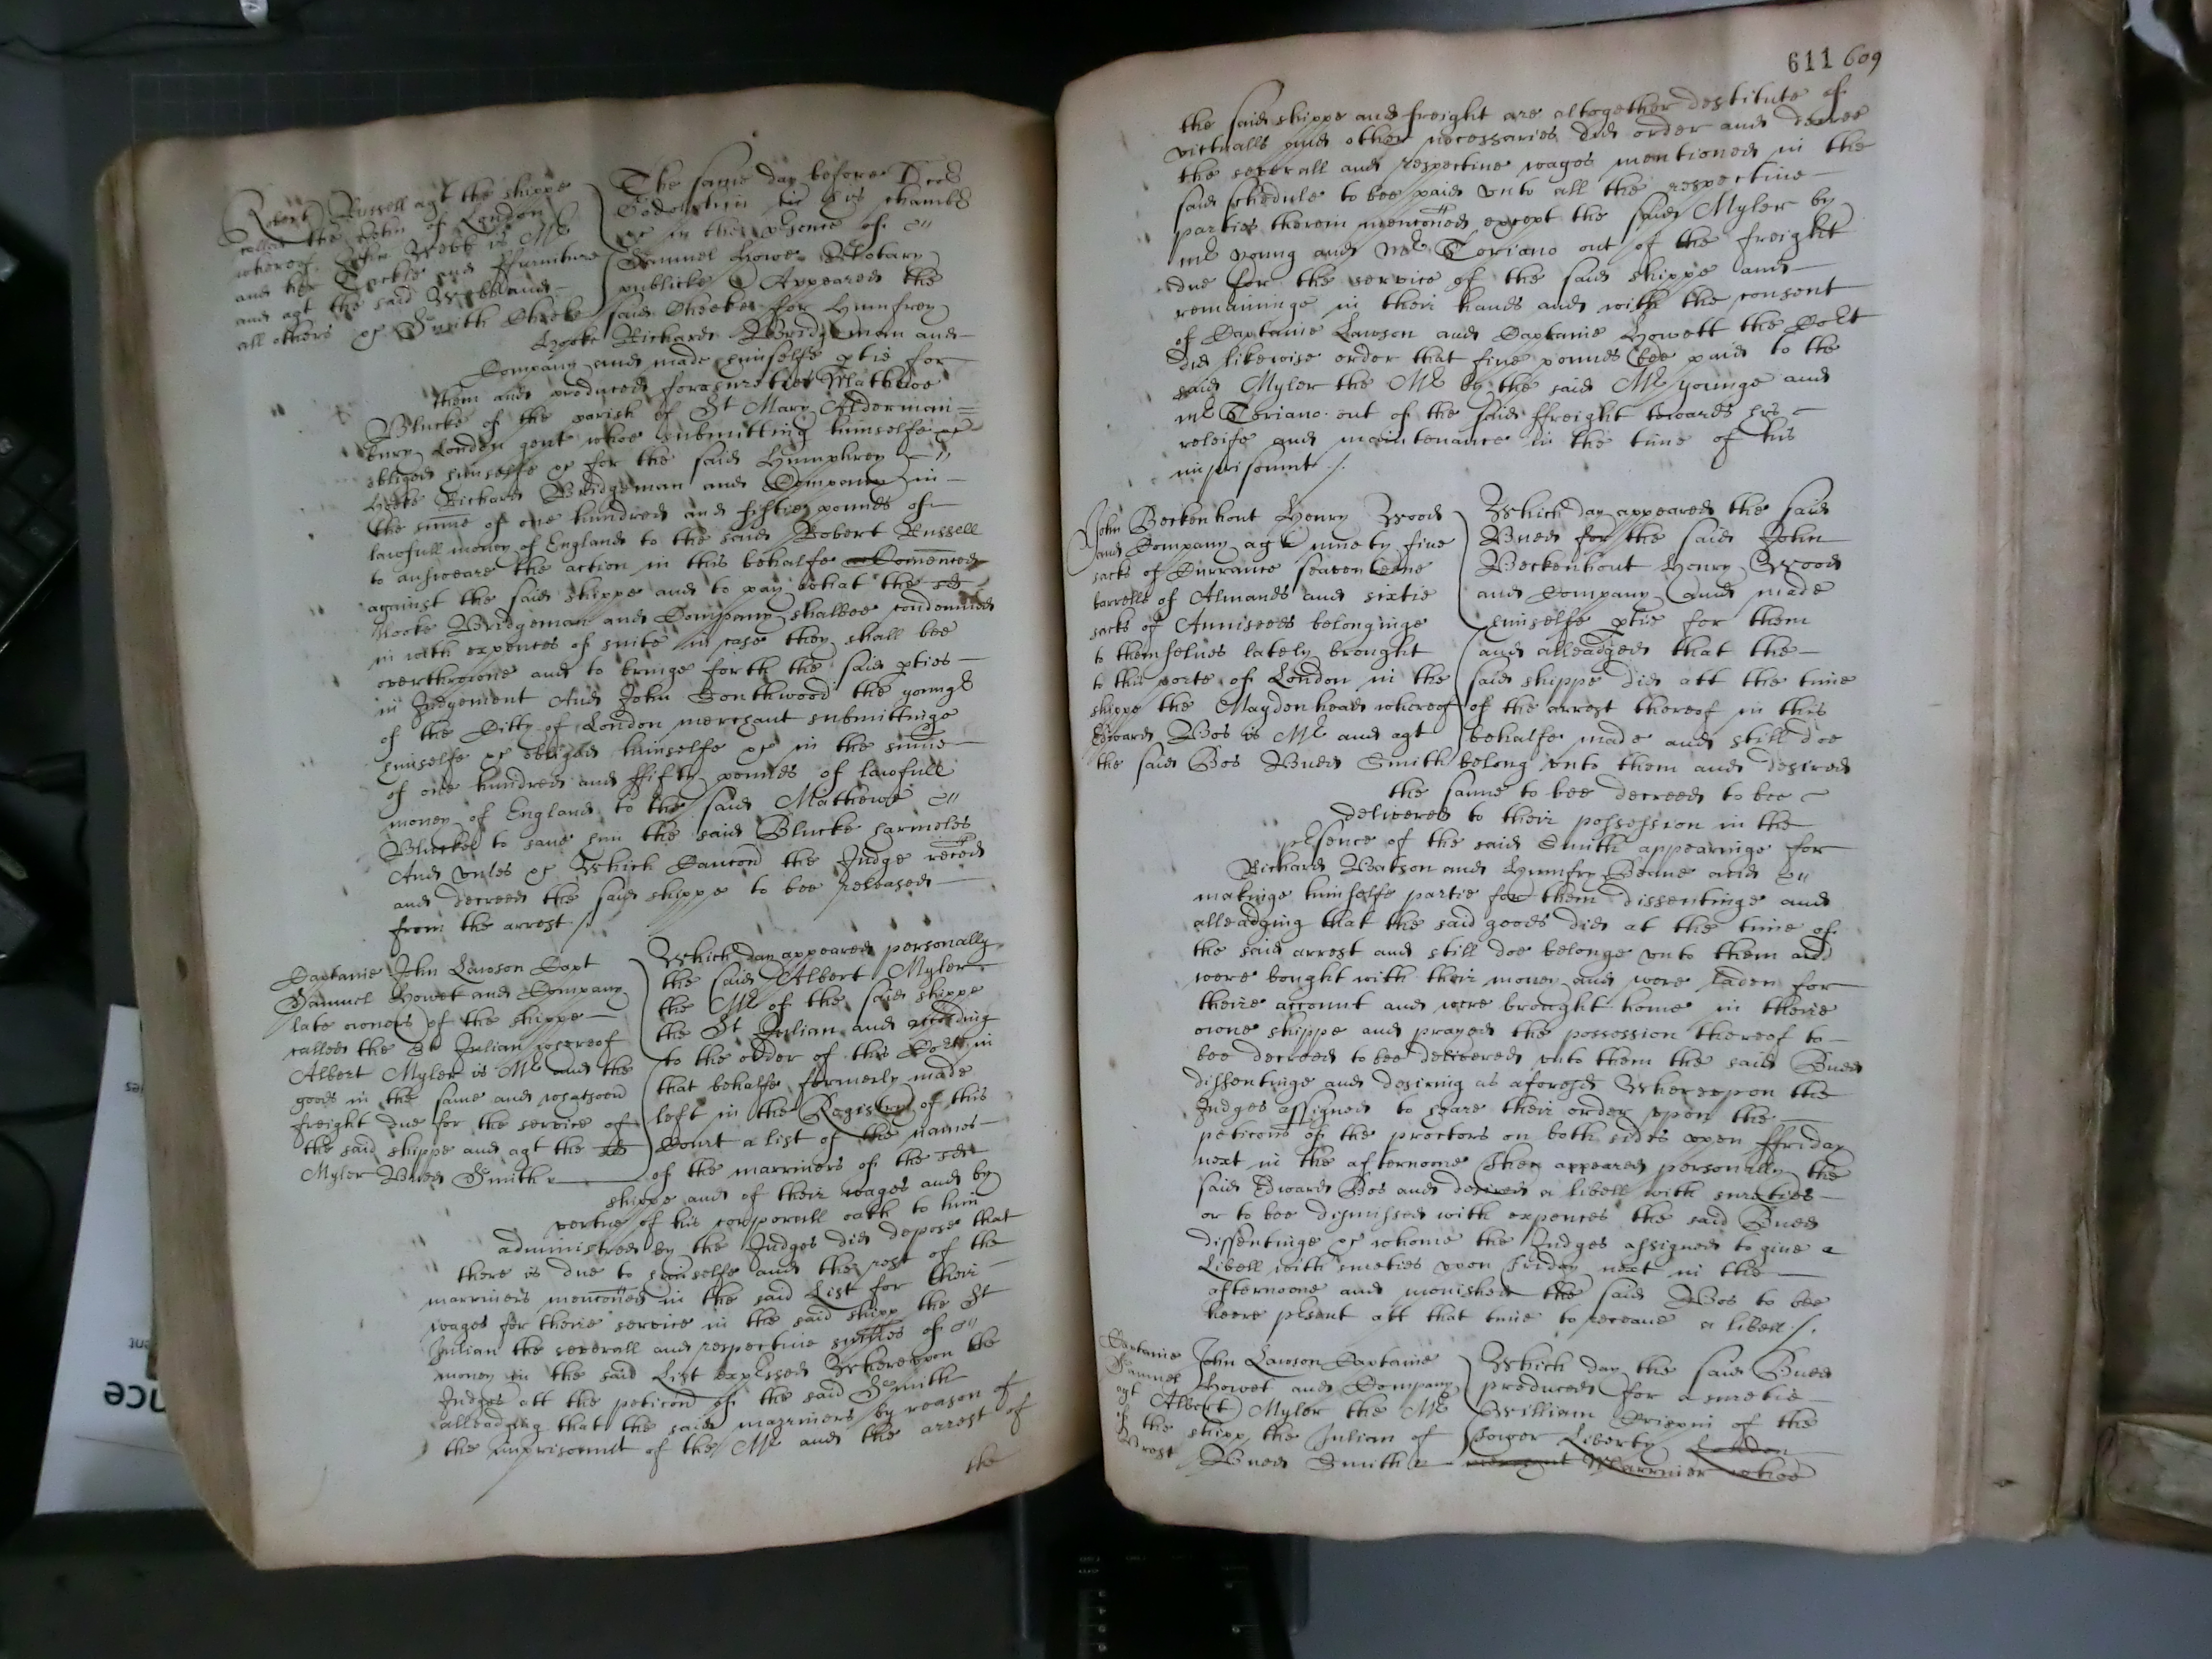 Robert Russell agt the shippe
called the of London
whereof John Webb is Mr
and her Tackle and ffurniture
and agt the said Webb and
all others &c Smith Cheeke
The same day before Dcor
Godolphin in his chambr
&c in the psence of
Samuel Howe Notary
publicke Appeared the
said Cheeke for Humfrey
Hooke Richard Bridgeman and
Company and made himselfe ptie for
them and produced for a suretie Mathewe
Blucke of the parish of St Mary Alderman=
bury London gent whoe submitting himselfe &c
obliged himselfe &c for the said Humphrey
Hooke Richard Bridgeman and Company in
the summe of one hundred and fiftie pounds of
lawfull money of England to the said Robert Russell
to answeare the action in this behalfe Comenced
against the said shippe and to pay what the sd
Hooke Bridgeman and Company shalbee condemned
in with expences of suite in case they shall bee
overthrowne and to bringe forth the said pties
in Judgement And John Southwood the youngr
of the Citty of London merchant submittinge
himselfe &c obliged himselfe &c in the summe
of one hundred and ffifty pounds of lawfull
money of England to the said Mathewe
Blucke to save him the said Blucke harmeles
And unles &c Which Caucon the Judge reced
and decreed the said shippe to bee released
from the arrest /
Captaine John Lawson Capt
Samuel Howet and Company
late owners of the shippe
called the St Julian whereof
Albert Myler is Mr and the
goods in the same and whatsoevr
freight due for the service of
the said shippe and agt the sd
Myler Bued Smith
Which day appeared personally
the said Albert Myler
the Mr of the said shippe
the St Julian and according
to the order of this Cort in
that behalfe formerly made
left in the Registry of this
Court a list of the names
of the marriners of the sd
shippe and of their wages and by
vertue of his corporall oath to him
administred by the Judges did depose that
there is due to himselfe and the rest of the
marriners menconed in the said List for their
wages for theire service in the said shipp the St
Julian the severall and respective summes of
money in the said List expressed Whereupon the
Judges att the peticon of the said Smith
alleadging that the said marriners by reason of
the imprisonmt of the Mr and the arrest of
the
611 609
the said shippe and freight are altogether destitute of
victualls and other necessaries did order and decree
the severall and respective wages mentioned in the
said schedule to bee paid unto all the respective
parties therein menconed except the said Myler by
mr Young and mr Toriano out of the freight
due for the service of the said shippe and
remaininge in their hands and with the consent
of Captaine Lawson and Captaine Howett the Cort
did likewise order that five pounds bee paid to the
said Myler the Mr by the said Mr Younge and
mr Toriano out of the said ffreight towards his
releife and maintenance in the time of his
imprisonmt /.
John Beckenhout Henry Wood
and Company agt ninety five
sacks of Currance seaventeene
barrells of Almonds and sixtie
sacks of Anniseeds belonginge
to themselves lately brought
to this porte of London in the
shippe the Maydenhead whereof
Edward Bos is Mr and agt
the said Bos Bued Smith
Which day appeared the said
Bued for the said John
Beckenhout Henry Wood
and Company and made
himselfe ptie for them
and alleadged that the
said shippe did att the time
of the arrest thereof in this
behalfe made and still doe
belong unto them and desired
the same to bee decreed to bee
delivered to their possession in the
psence of the said Smith appearinge for
Richard Watson and Humfry Beane and
makinge himselfe partie for them dissentinge and
alleadging that the said goods did at the time of
the said arrest and still doe belonge unto them and
were bought with their money and were laden for
theire account and were brought home in theire
owne shippe and prayed the possession thereof to
bee decreed to bee delivered unto them the said Bued
dissentinge and desiring as aforesd Whereupon the
Judges assigned to heare their order upon the
peticons of the proctors on both sides upon ffriday
next in the afternoone Then appeared personally the
said Edward Bos and desired a libell with sureties
or to bee dismissed with expences the said Bued
dissentinge &c whome the Judges assigned to give a
Libell with sureties upon friday next in the
afternoone and monished the said Bos to bee
heere psent att that time to receave a libell /.
Captaine John Lawson Captaine
Samuel Howet and Company
agt Albert Myler the Mr
of the shipp the Julian of
Brest Bued Smith
Which day the said Bued
produced for a suretie
William Crispin of the
Tower Liberty London
merchant Marriner whoe